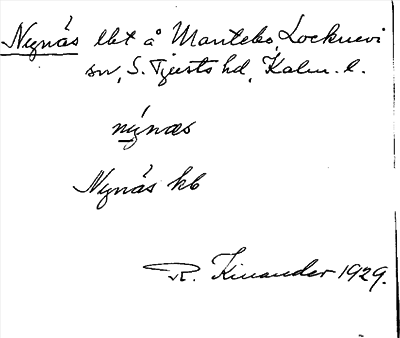 Nynäs lht å Mantebo, Locknevi
sn, S. Tjusts hd, Kalm. l.
nýnæs
Nynäs kb
R. Kinander 1929.